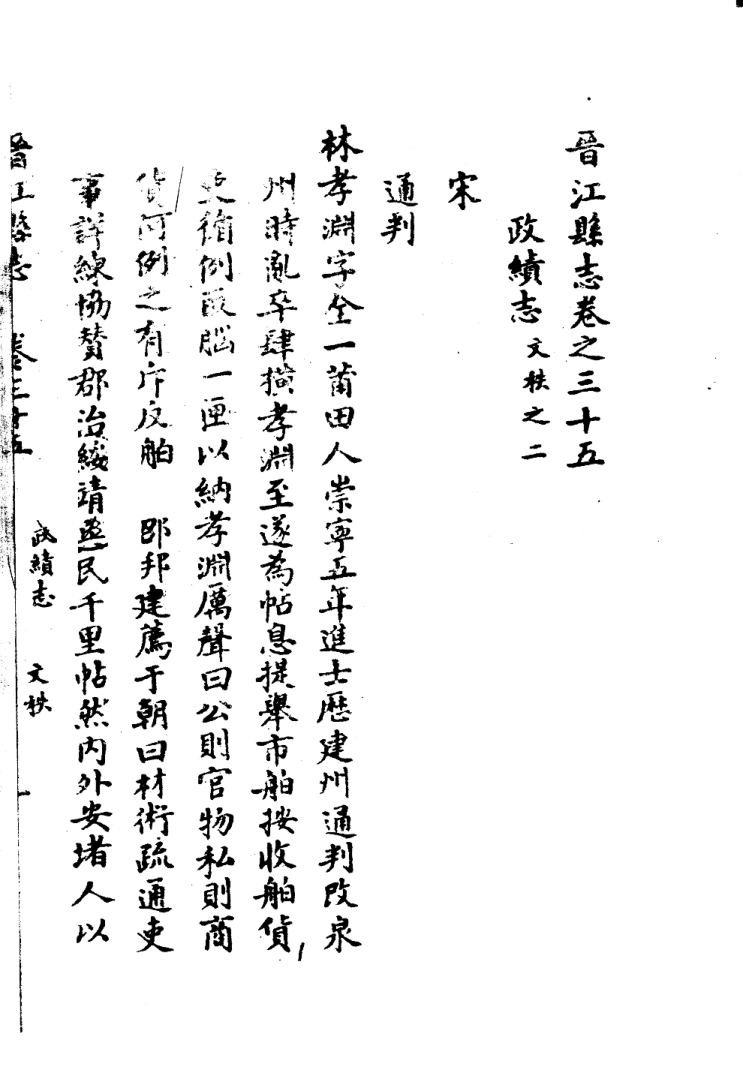 晉江縣志卷之三十五
政績志 文秩之二
宋
通判
林孝淵字全一莆田人崇寧五年進士歷建州通判改泉
州時亂卒肆橫孝淵至遂為帖息提舉市舶按收舶貨
吏循例取腦一匣以納孝淵厲聲曰公則官物私則商
貨何例之有斥反舶 郎邦建薦于朝曰材術疏通吏
事詳練協贊郡治綏靖遠民千里帖然內外安堵人以
晉江縣志 卷三十五 政績志 文秩 一